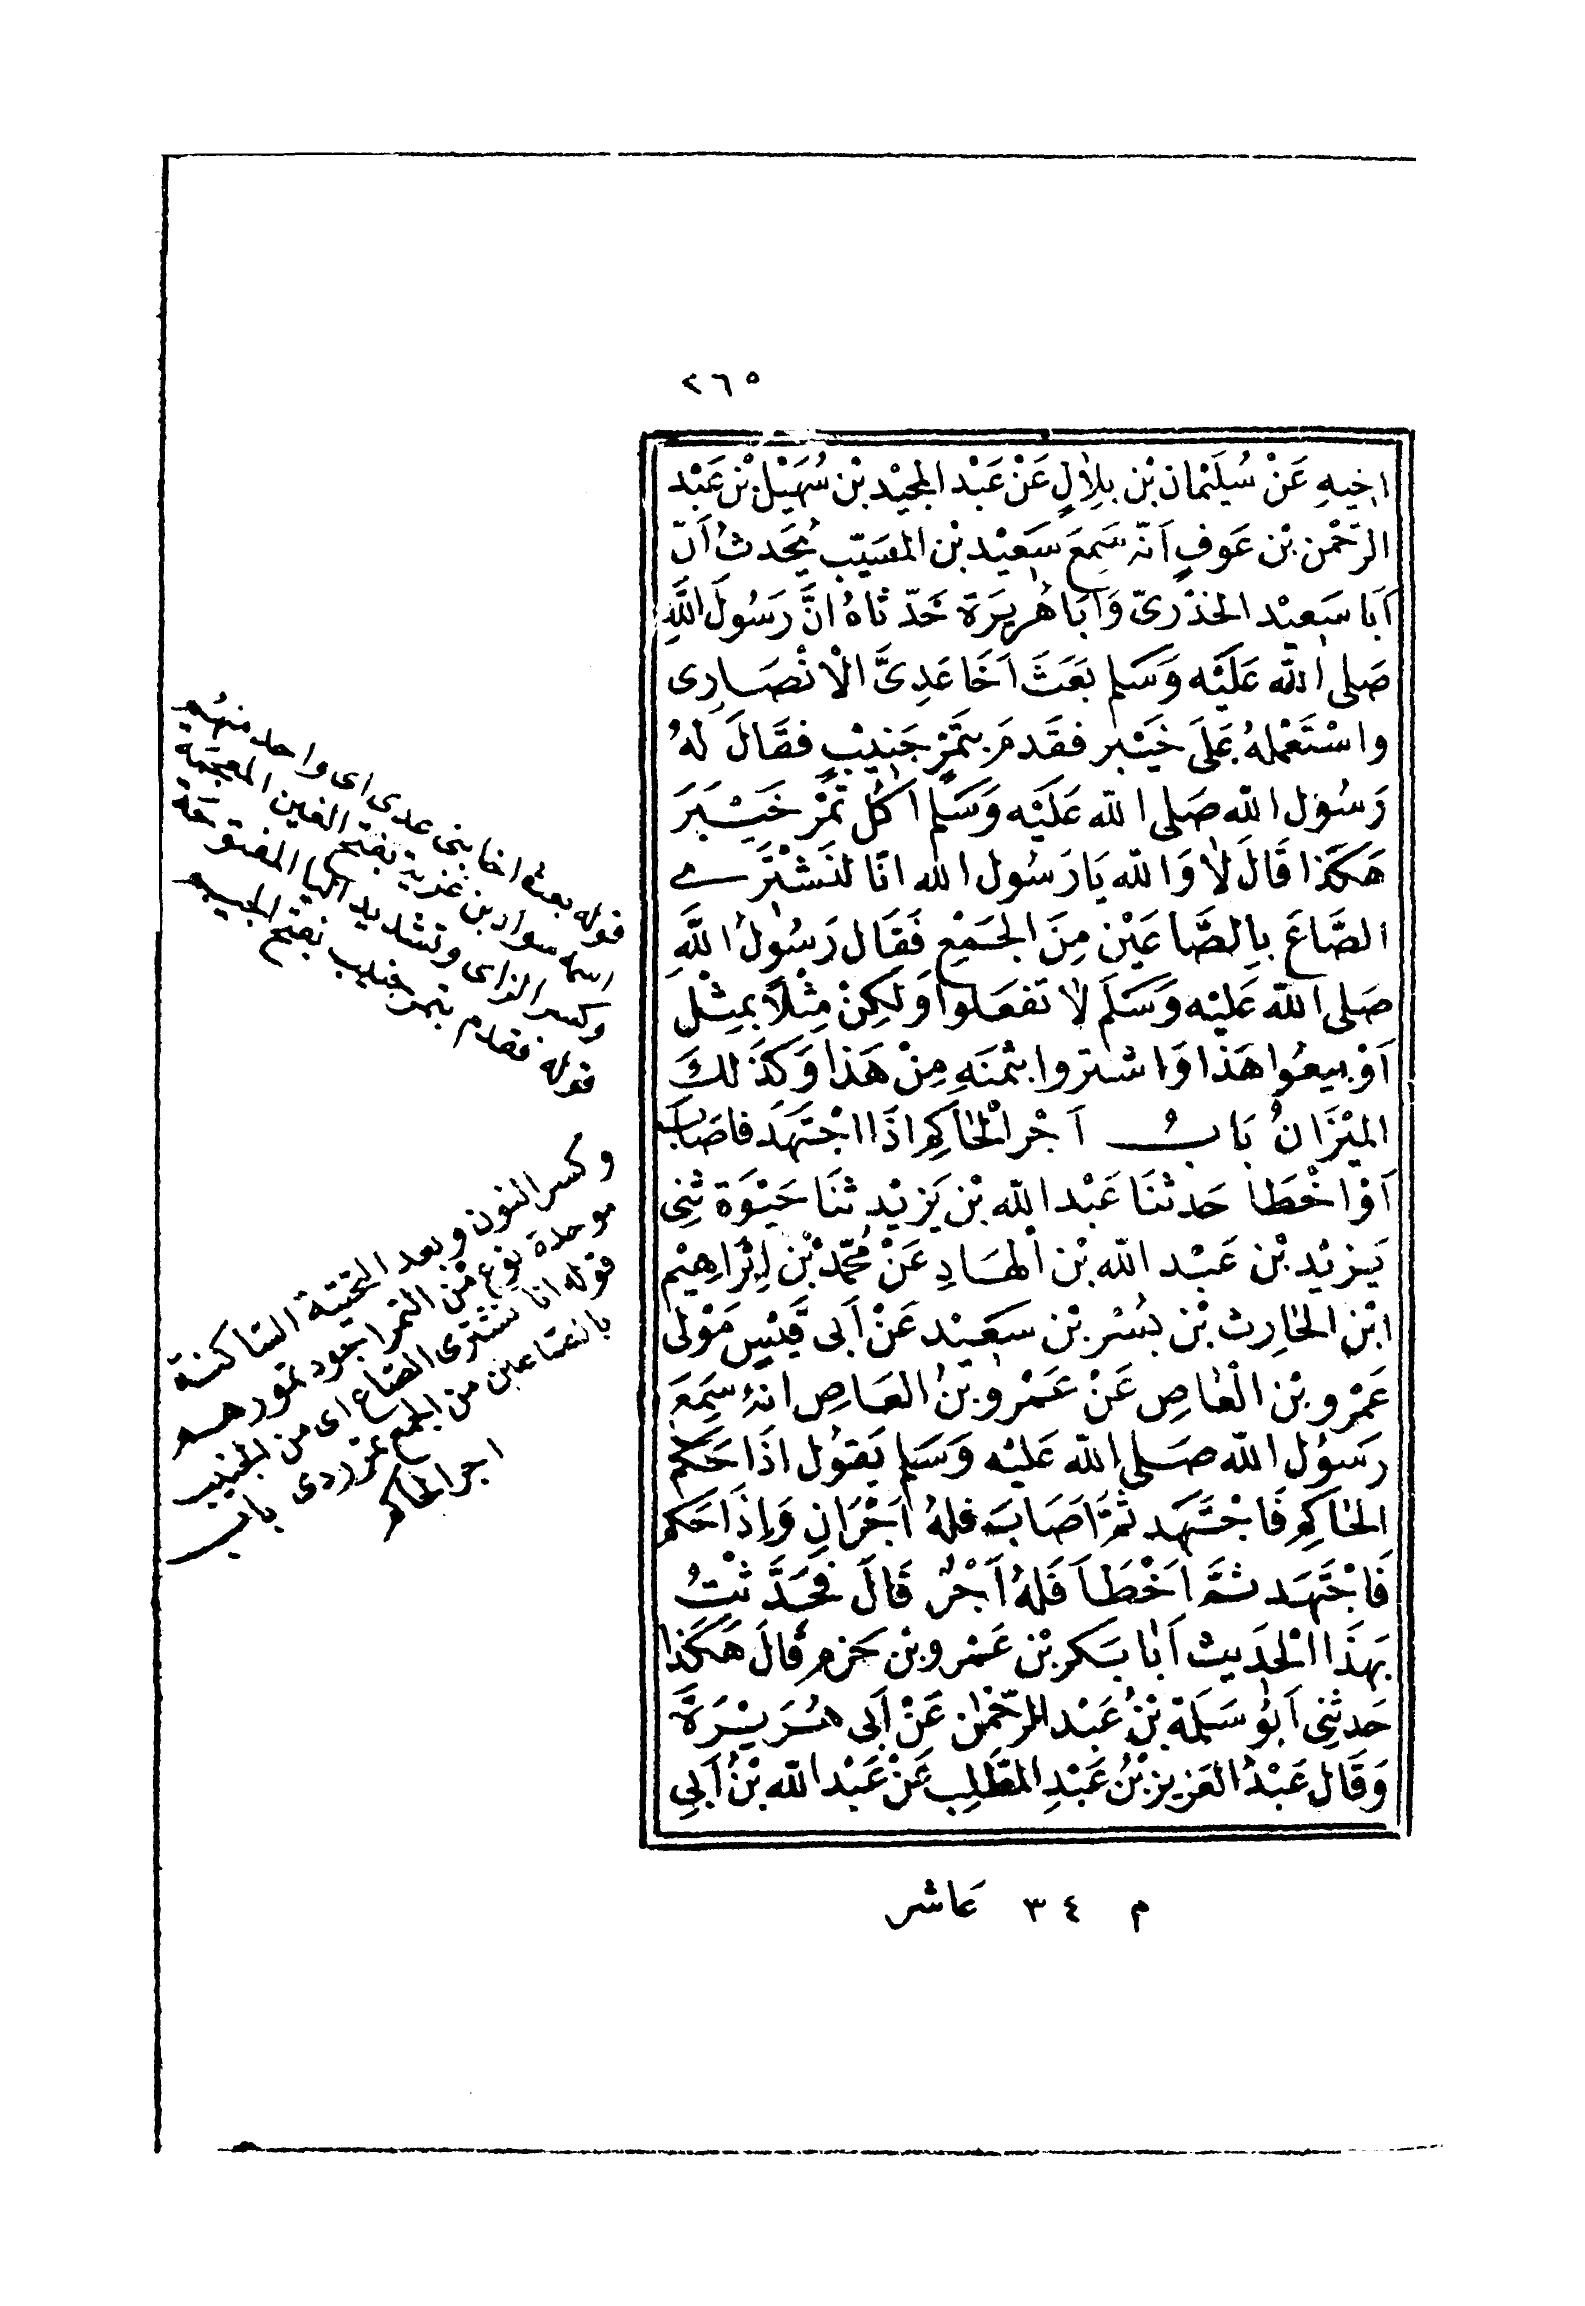 ٢٦٥
اخِيهِ عَنْ سُلَيْمَانَ بْنِ بِلَالٍ عَنْ عَبْدِ المجِيْدِ بْنِ سُهَيْلِ بْنِ عَبْدِ
الرّحْمٰنِ بْنِ عَوفٍ اَنّه سَمِعَ سَعِيْدَ بْنَ المسَيّبِ يُحَدثُ اَنّ
اَبَا سَعِيْدِ الخدْرِيّ وَاَبَا هُرَيرَةَ حَدّثَاهُ انَّ رَسُولَ اللَّهِ
صَلى اللّه عَلَيْه وَسَلم بَعَثَ اَخَا عَدِىَّ الْاَنْصَارِى
واسْتَعْمَلهُ عَلَى خَيْبر فقَدمَ بتَمْرٍ جَنِيْبٍ فقَالَ لهُ
رَسُوْل اللّه صَلى اللّه عَلَيْه وَسَلم اَكُل تَمْرِ خَيْبَرَ
هَكَذا قَالَ لَا وَاللّه يَا رَسُول اللّه انّا لنَشْتَرِے
الصَّاعَ بِالصَّاعَيْنِ مِنَ الجَمْعِ فَقَال رَسُولُ اللَّهِ
صَلى اللّه عَليْه وَسَلم لا تَفعَلوا وَلكِنْ مِثْلاً بمِثْلٍ
اَوْ بيعُوا هَذَا وَاشتروا بثمَنَهِ مِنْ هَذا وَكَذَلكَ
الميْزَانُ بَابُ اَجْرِ الْحَاكِمِ اذَا اجْتَهَدَ فاصَابَ
اَوْ اخْطَا حَدثنَا عَبْد اللّه بْن يَزيْد ثنَا حَيْوَة ثنِى
يَزيْد بْن عَبْد اللّه بْن الْهَادِ عَنْ مُحَمّد بْن اِبْرَاهِيْم
ابْنِ الحَارِث بْن بُسْر بْن سَعِيْد عَنْ أَبى قَيْس مَوْلى
عَمْرو بْن الْعَاصِ عَنْ عَمْرو بْن العَاصِ انهُ سَمِعَ
رَسُوْل اللّه صَلى اللّه عَليْه وَسَلم يَقوُل اذَا حَكَم
الحَاكِم فَاجْتَهَد ثمَّ اَصَابَ فلهُ اَجْرَانِ وَاِذَا حَكم
فَاجْتَهَد ثمَّ اَخْطَا فَلهُ اَجْرٌ قَالَ فحَدَّثْتُ
بهَذَا الْحَدِيث اَبَا بَكر بْن عَمْرو بْن حَزمٍ فقَالَ هَكَذا
حَدثنِى اَبُو سَلمَة بْنُ عَبْد الرّحمٰن عَنْ أَبى هُرَيْرَةَ
وَقَال عَبْدُ العَزِيز بْنُ عَبْدِ المطَّلِبِ عَنْ عَبْد اللّه بْنِ اَبِى
قوله بعث اخا بنى عدى اى واحد منهم
اسمه سواد بن غزية بفتح الغين المعجمة
وكسر الزاى وتشديد اليا المفتوحة
قوله فقدم بتمر جنيب بفتح الجيم
وكسر النون وبعد التحتية الساكنة
موحدة نوع من التمر اجود تمورهم
قوله انا نشترى الصّاع اى من الجنيب
بالصّاعين من الجمع تمر ردى باب
اجر الحاكم
م ٣٤ عاشر